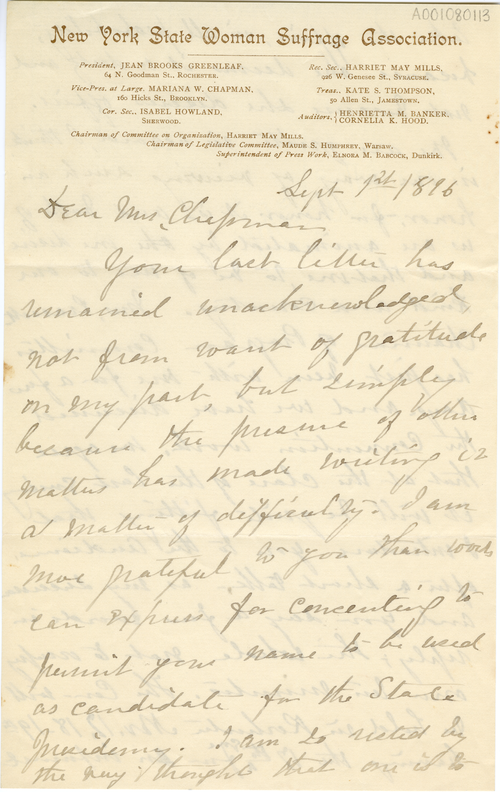 A001080113
New York State Woman Suffrage Association.
President, JEAN BROOKS GREENLEAF,
64 N. Goodman St., ROCHESTER.
Vice-Pres. at Large. MARIANA W. CHAPMAN,
160 Hicks St., BROOKLYN.
Cor. Sec., ISABEL HOWLAND,
SHERWOOD.
Rec. Sec., HARRIET MAY MILLS,
926 W. Genesee St., SYRACUSE.
Treas., KATE S. THOMPSON,
50 Allen St., JAMESTOWN.
Auditors, HENRIETTA M. BANKER,
CORNELIA K. HOOD.
Chairman of Committee on Organization, HARRIET MAY MILLS.
Chairman of Legislative Committee, MAUDE S. HUMPHREY, Warsaw.
Superintendent of Press Work, ELNORA M. BABCOCK, Dunkirk.
Sept 1st/1896
Dear Mrs Chapman
Your last letter has
remained unacknowledged,
not from want of gratitude
on my part, but simply
because the pressure of other
matters has made writing
a matter of difficulty. I am
more grateful to you than words
can express for consenting to
permit your name to be used
as candidate for the State
Presidency. I am so rested by
the very thought that one is to